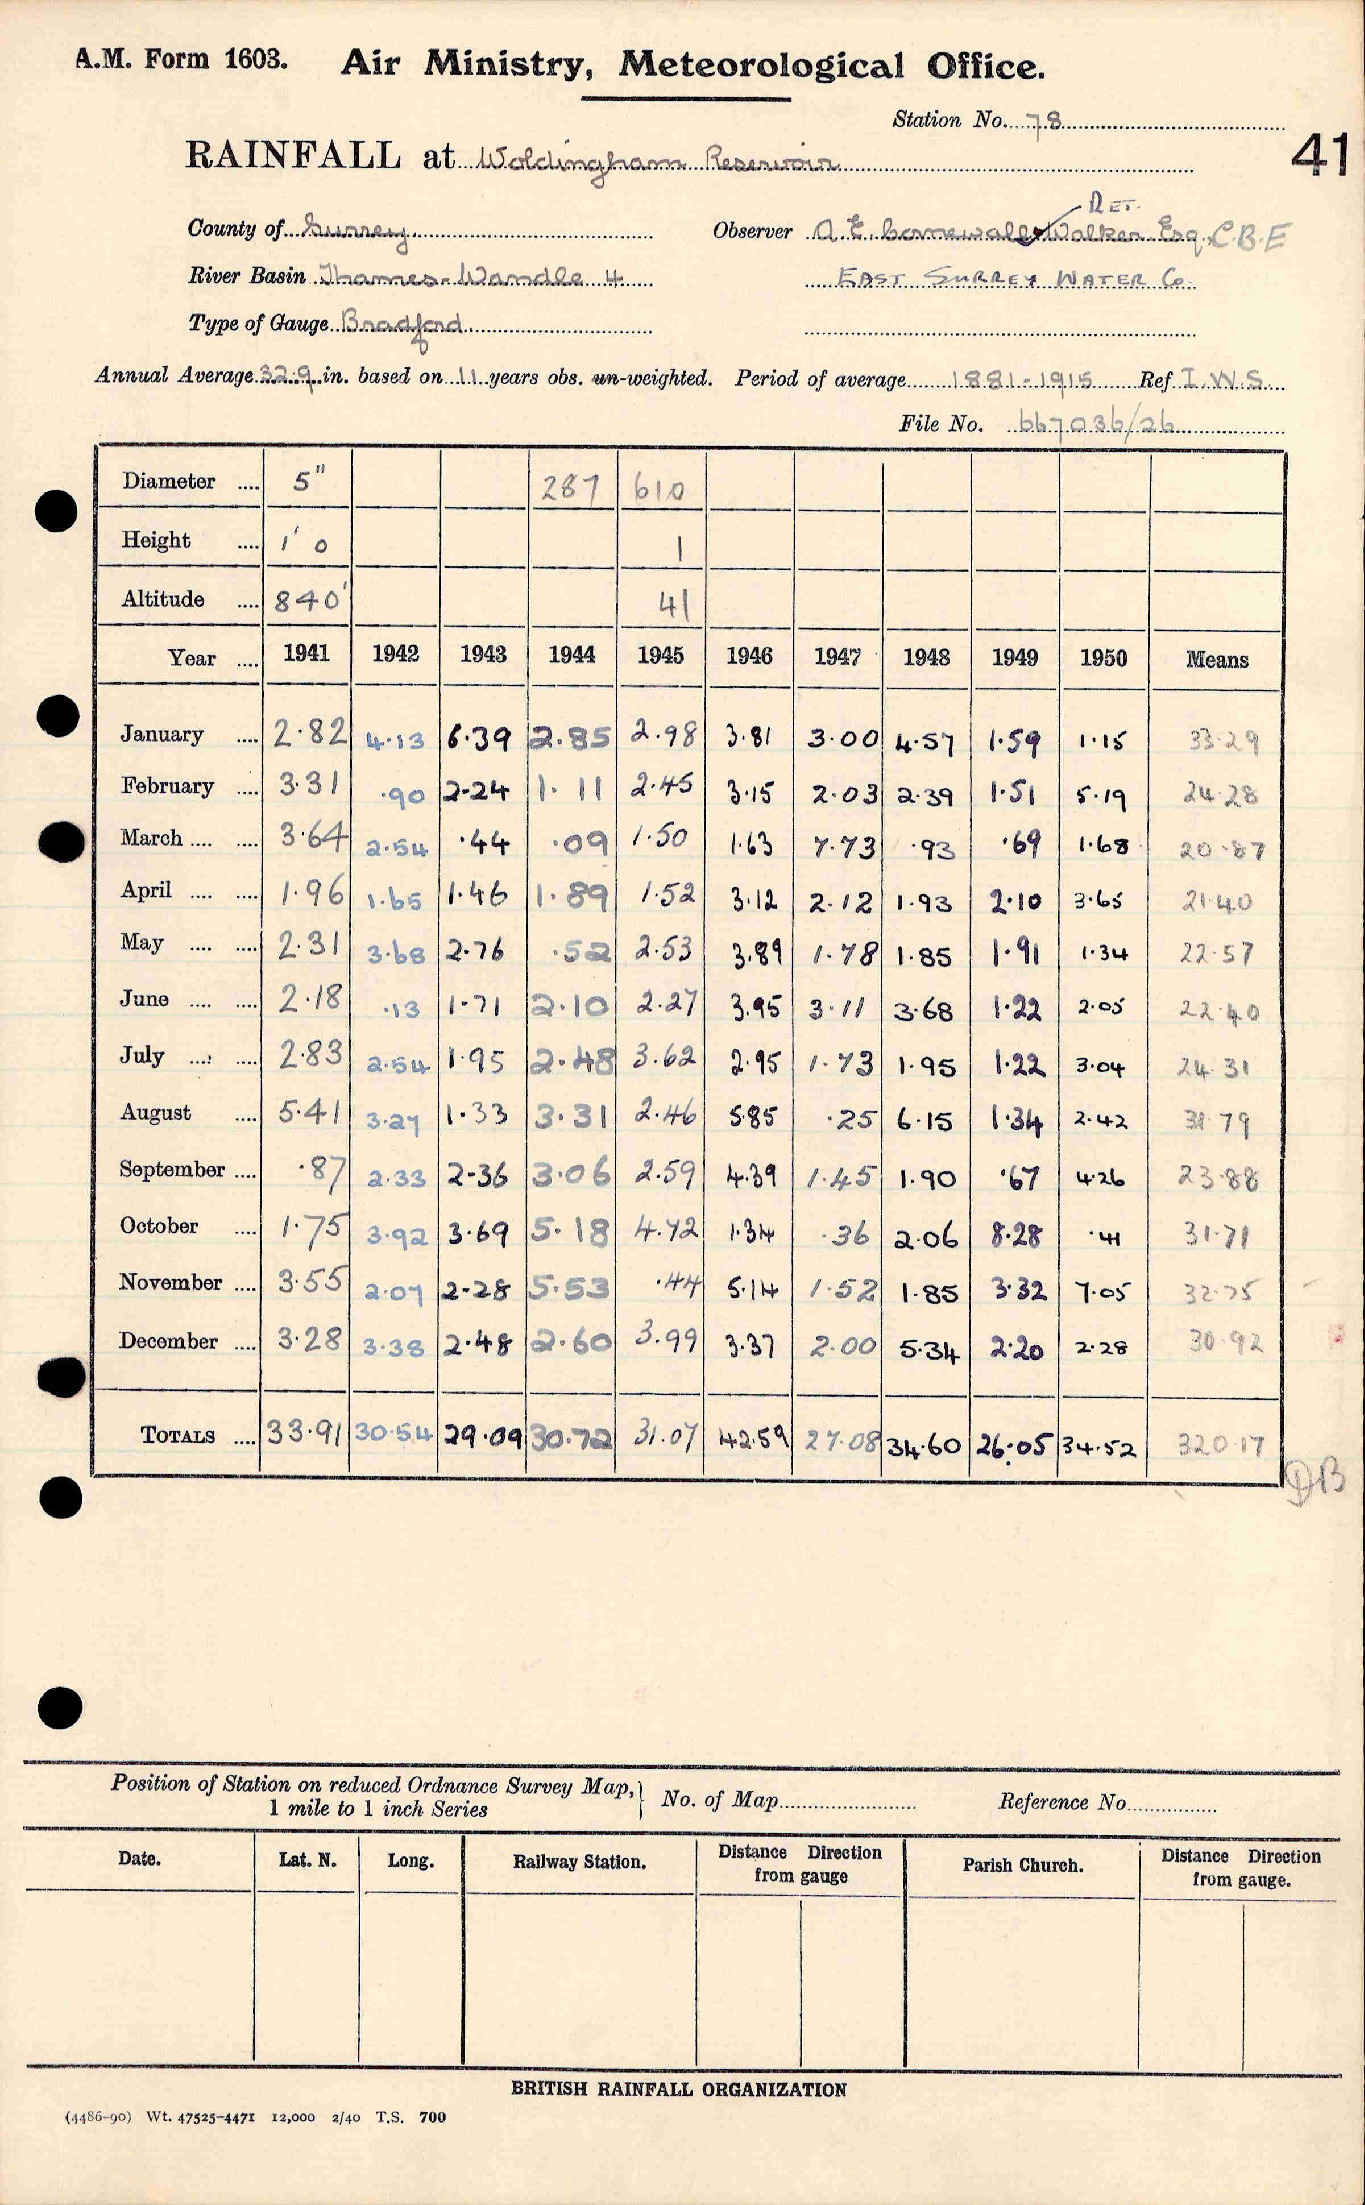 A.M. Form 1603. Air Ministry, Meteorological Office.
Station No. 78
41
RAINFALL at Woldingham Reservoir
RET.
County of Surrey Observer A. E. Cornewall-Walker Esq. C.B.E
River Basin Thames-Wandle 4 EAST SURREY WATER Co.
Type of Gauge Bradford
Annual Average 32.9 in. based on 11 years obs. un-weighted. Period of average 1881-1915 Ref I.W.S.
File No. 667036/26
Diameter .... 5" 287 610
Height .... 1' 0 1
Altitude .... 840' 41
Year .... 1941 1942 1943 1944 1945 1946 1947 1948 1949 1950 Means
January .... 2.82 4.13 6.39 2.85 2.98 3.81 3.00 4.57 1.59 1.15 33.29
February .... 3.31 .90 2.24 1.11 2.45 3.15 2.03 2.39 1.51 5.19 24.28
March .... .... 3.64 2.54 .44 .09 1.50 1.63 7.73 .93 .69 1.68 20.87
April .... .... 1.96 1.65 1.46 1.89 1.52 3.12 2.12 1.93 2.10 3.65 21.40
May .... .... 2.31 3.68 2.76 .52 2.53 3.89 1.78 1.85 1.91 1.34 22.57
June .... .... 2.18 .13 1.71 2.10 2.27 3.95 3.11 3.68 1.22 2.05 22.40
July .... .... 2.83 2.54 1.95 2.48 3.62 2.95 1.73 1.95 1.22 3.04 24.31
August .... 5.41 3.27 1.33 3.31 2.46 5.85 .25 6.15 1.34 2.42 31.79
September .... .87 2.33 2.36 3.06 2.59 4.39 1.45 1.90 .67 4.26 23.88
October .... 1.75 3.92 3.69 5.18 4.72 1.34 .36 2.06 8.28 .41 31.71
November .... 3.55 2.07 2.28 5.53 .44 5.14 1.52 1.85 3.32 7.05 32.75
December .... 3.28 3.38 2.48 2.60 3.99 3.37 2.00 5.34 2.20 2.28 30.92
TOTALS .... 33.91 30.54 29.09 30.72 31.07 42.59 27.08 34.60 26.05 34.52 320.17
DB
Position of Station on reduced Ordnance Survey Map, } No. of Map Reference No
1 mile to 1 inch Series
Date. Lat. N. Long. Railway Station. Distance Direction from gauge Parish Church. Distance Direction from gauge.
BRITISH RAINFALL ORGANIZATION
(4486-90) Wt. 47525-4471 12,000 2/40 T.S. 700